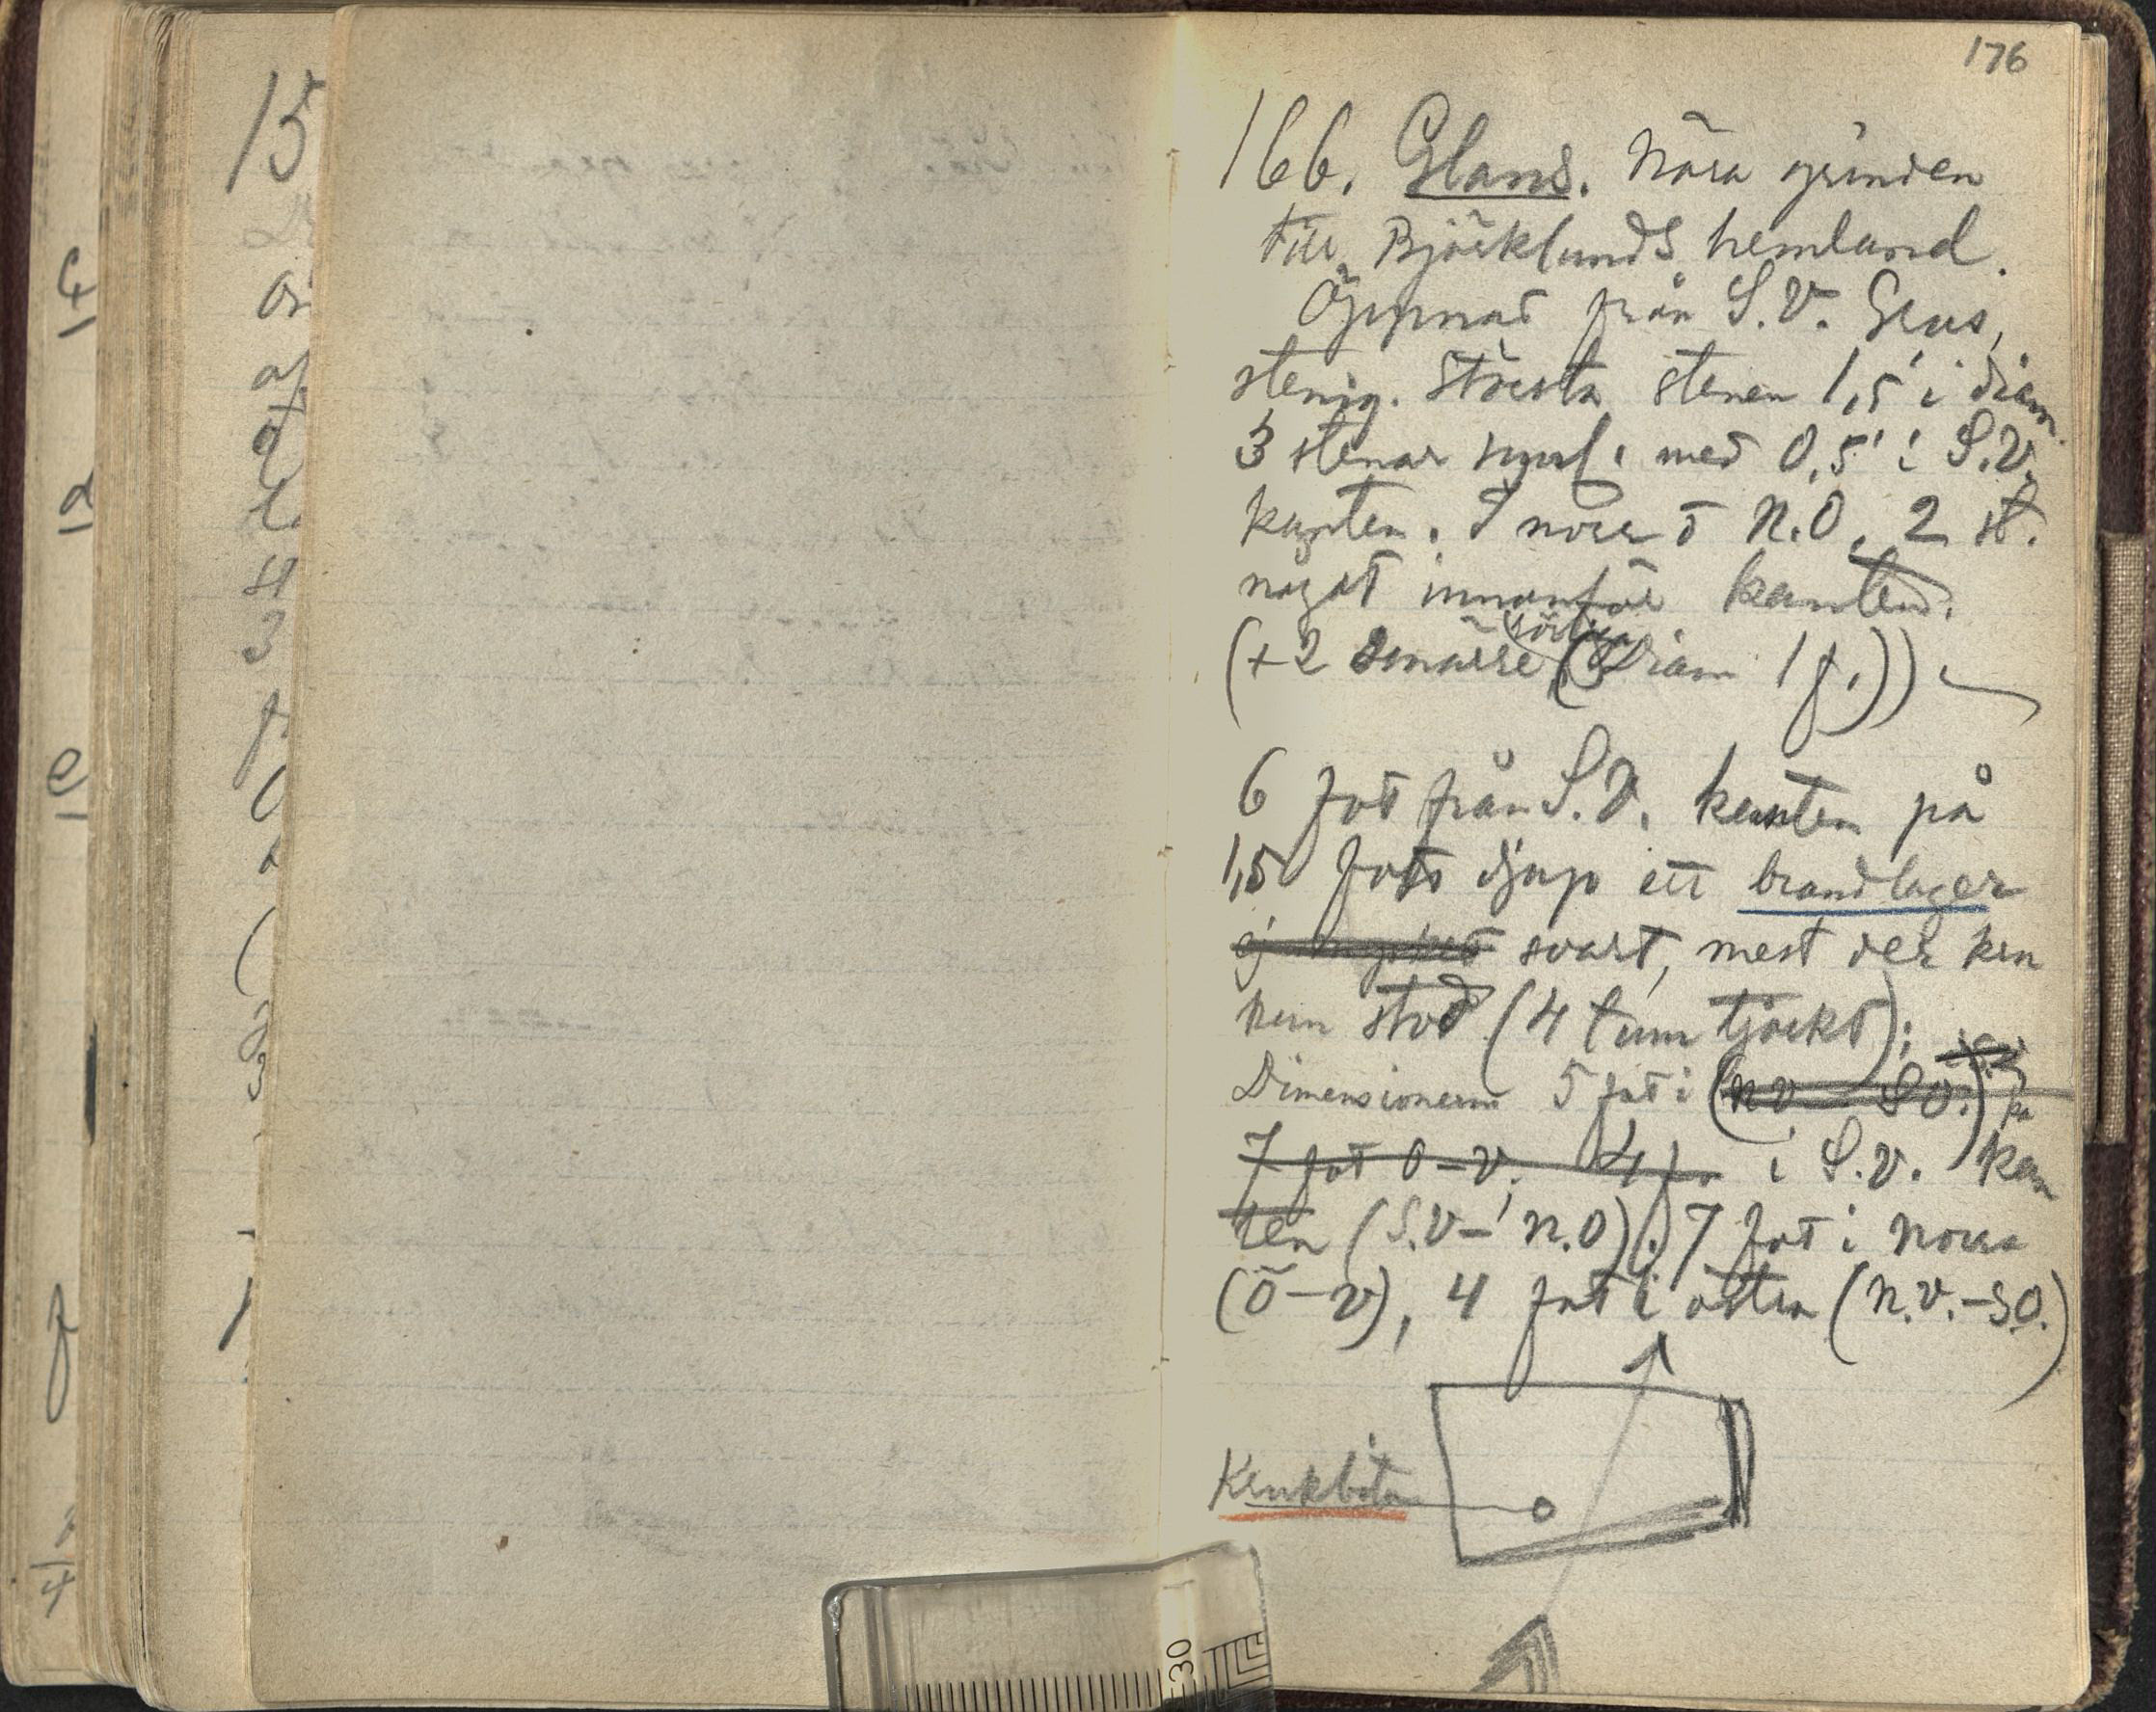 176
166. Glans. Nära grinden
till Björklunds hemland.
Öppnad från S.V. Grus,
stenig. Största stenen 1,5' i diam.
3 stenar med 0,5' i S.V.
kanten. I norr o N.O. 2 st.
något innanför kanten.
(+2 smärre (Diam 1 f.))
6 fot från S.V. kanten på
1,5 fots djup ett brandlager
ej mycket svart, mest der kru
kan stod (4 tum tjockt);
Dimensionerna 5 fot i (NV - SO.)
7 fot O-V, 4 i S.V. kan
ten (S.V - N.O); 7 fot i norra
(Ö-V), 4 fot i östra (N.V.-S.O.)
Krukbitar
15
30